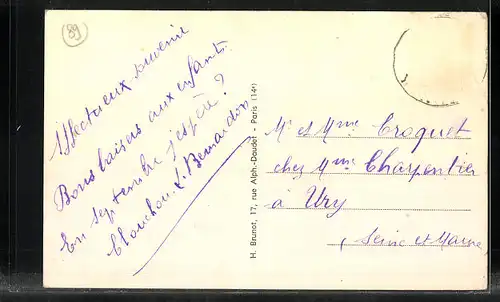 89
Affectueux souvenir
Bons baisers aux enfants.
En septembre j'espère ?
L. Bernardin
H. Brunot, 17, rue Alph.-Daudet - Paris (14e)
Mr et Mme Croquet
chez Mme Charpentier
à Ury
Seine et Marne